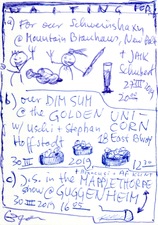 WAITING FOR:
a) For our Schweinshaxn
@ Mountain Brauhaus, New Paltz
+ JMK
Schubert
27 III
2019
20 25
b) our DIM SUM
@ the GOLDEN UNI-
CORN
w/ Uschi + Stephan
Hoffstadt
18 East Bway
30 III 2019 12 30
c) J.S. in the MAPPLETHORPE
show @ GUGGENHEIM
30 III 2019 16 25